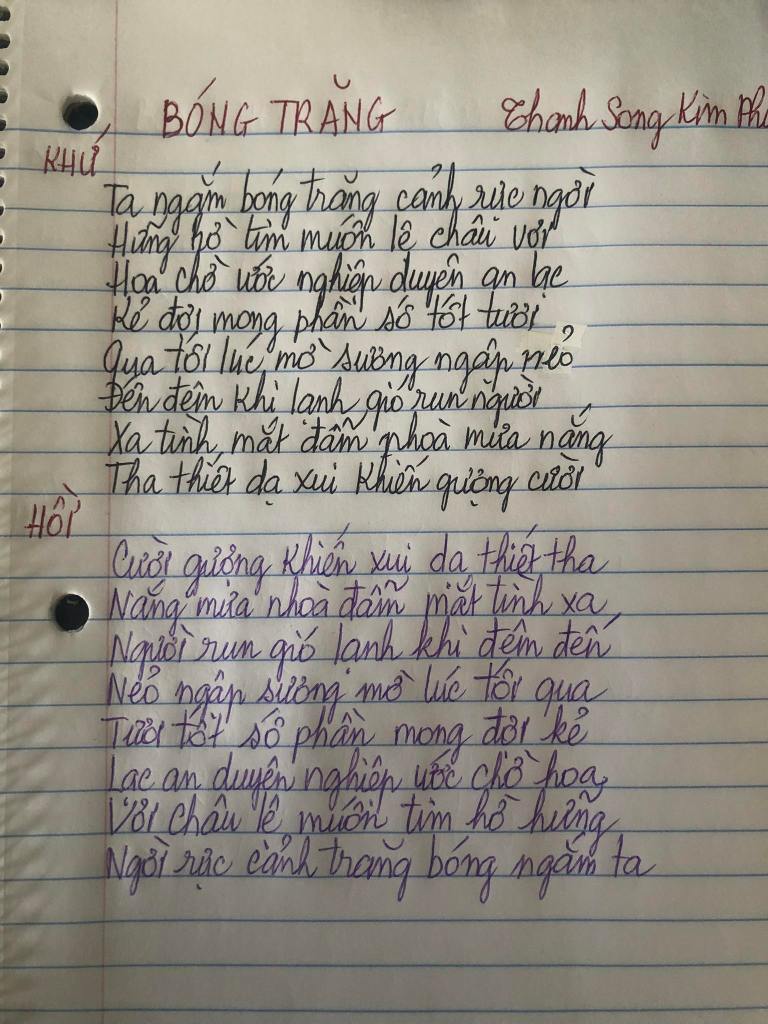 BÓNG TRĂNG Thanh Song Kim
KHỨ
Ta ngắm bóng trăng cảnh rực ngời
Hững hờ tim muôn lệ châu vơi
Hoa chờ ước nghiệp duyên an lạc
Kẻ đợi mong phần số tốt tươi
Qua tối lúc mờ sương ngập nẻo
Đến đêm khi lạnh gió run người
Xa tình mắt đẫm nhoà mưa nắng
Tha thiết dạ xui khiến gượng cười
HỒI
Cười gượng khiến xui dạ thiết tha
Nắng mưa nhoà đẫm mắt tình xa
Người run gió lạnh khi đêm đến
Nẻo ngập sương mờ lúc tối qua
Tươi tốt số phần mong đợi kẻ
Lạc an duyên nghiệp ước chờ hoa
Vơi châu lệ muôn tim hờ hững
Ngời rực cảnh trăng bóng ngắm ta